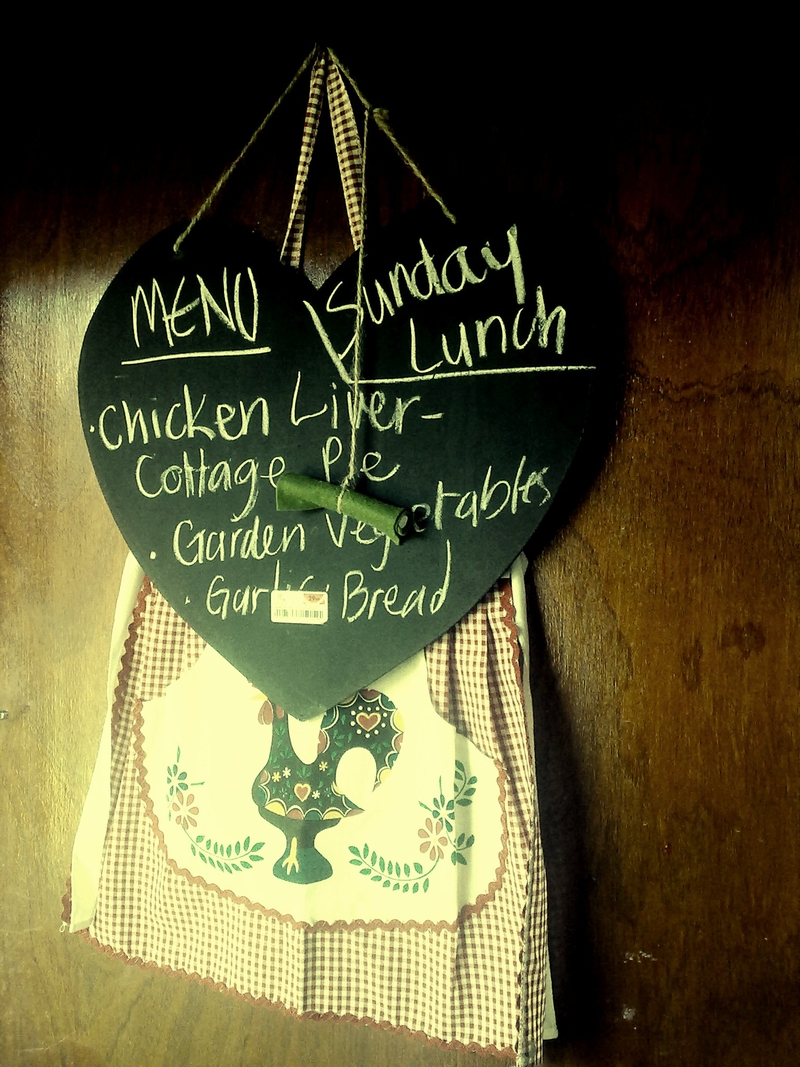 MENU
Sunday
Lunch
· Chicken Liver-
Cottage Pie
· Garden Vegetables
· Garlic Bread